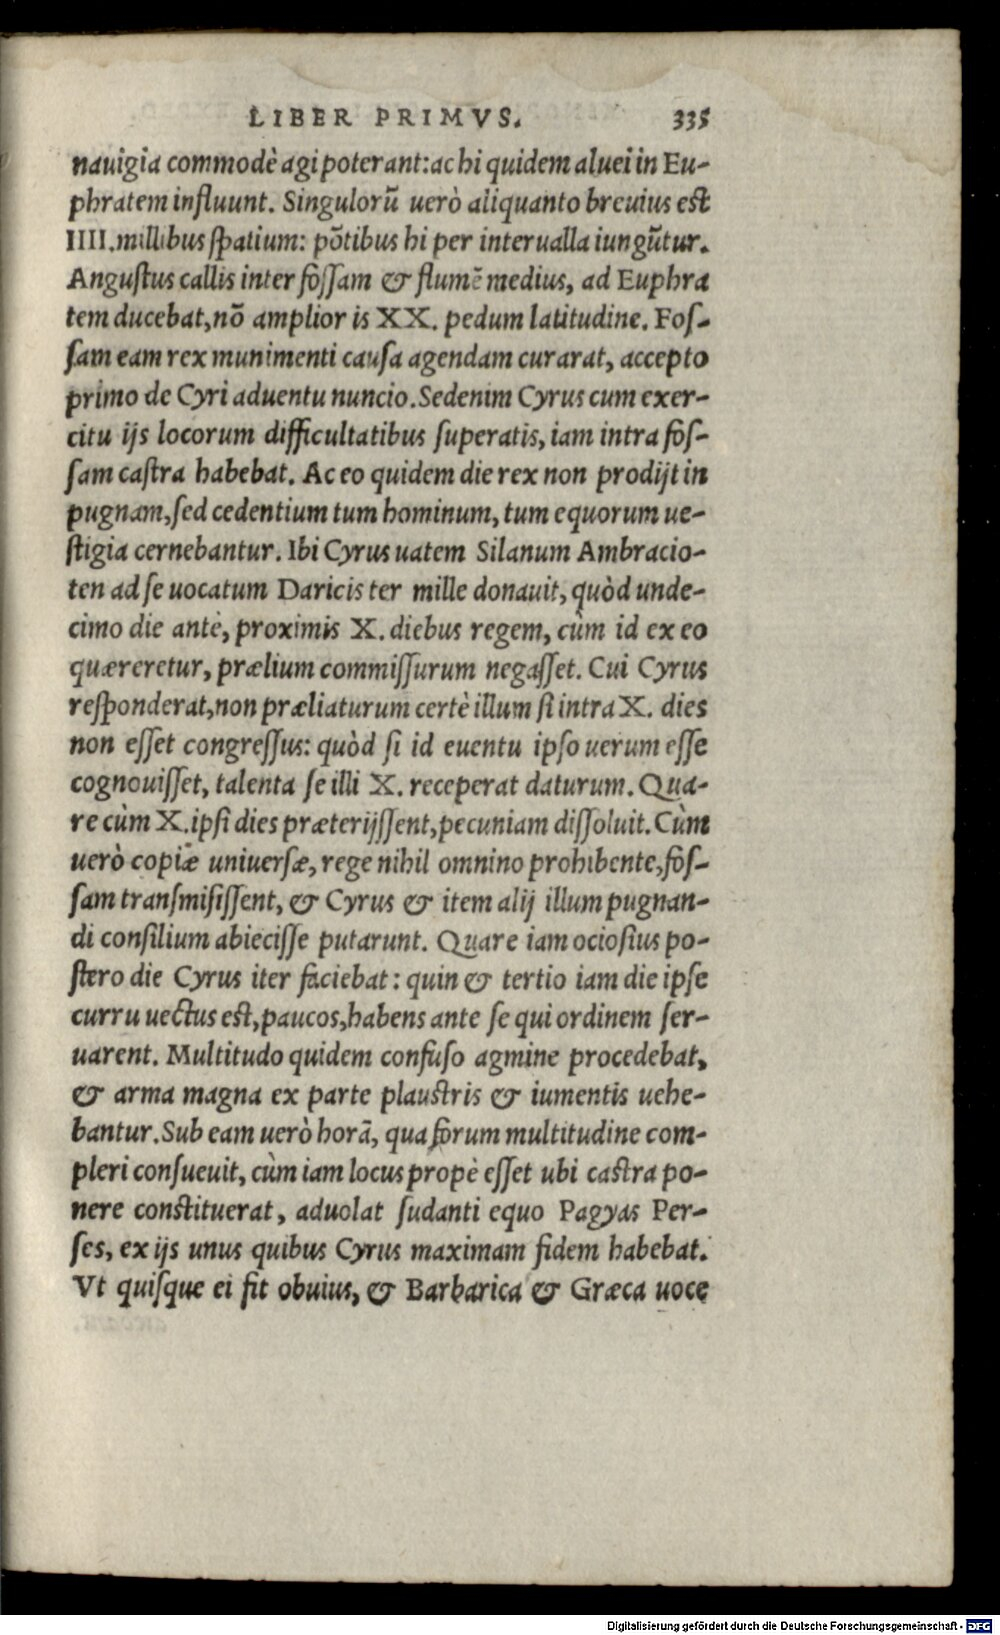 LIBER PRIMVS. 335
nauigia commodè agi poterant: ac hi quidem aluei in Eu-
phratem influunt. Singulorũ uerò aliquanto breuius est
IIII. millibus spatium: põtibus hi per interualla iungũtur.
Angustus callis inter fossam & flumẽ medius, ad Euphra
tem ducebat, nõ amplior is XX. pedum latitudine. Fos-
sam eam rex munimenti causa agendam curarat, accepto
primo de Cyri aduentu nuncio. Sedenim Cyrus cum exer-
citu ijs locorum difficultatibus superatis, iam intra fos-
sam castra habebat. Ac eo quidem die rex non prodijt in
pugnam, sed cedentium tum hominum, tum equorum ue-
stigia cernebantur. Ibi Cyrus uatem Silanum Ambracio-
ten ad se uocatum Daricis ter mille donauit, quòd unde-
cimo die antè, proximis X. diebus regem, cùm id ex eo
quæreretur, prælium commissurum negasset. Cui Cyrus
responderat, non præliaturum certè illum si intra X. dies
non esset congressus: quòd si id euentu ipso uerum esse
cognouisset, talenta se illi X. receperat daturum. Qua-
re cùm X. ipsi dies præterijssent, pecuniam dissoluit. Cùm
uerò copiæ uniuersæ, rege nihil omnino prohibente, fos-
sam transmisissent, & Cyrus & item alij illum pugnan-
di consilium abiecisse putarunt. Quare iam ociosius po-
stero die Cyrus iter faciebat: quin & tertio iam die ipse
curru uectus est, paucos, habens ante se qui ordinem ser-
uarent. Multitudo quidem confuso agmine procedebat,
& arma magna ex parte plaustris & iumentis uehe-
bantur. Sub eam uerò horã, qua forum multitudine com-
pleri consueuit, cùm iam locus propè esset ubi castra po-
nere constituerat, aduolat sudanti equo Pagyas Per-
ses, ex ijs unus quibus Cyrus maximam fidem habebat.
Vt quisque ei fit obuius, & Barbarica & Græca uoce
Digitalisierung gefördert durch die Deutsche Forschungsgemeinschaft - DFG